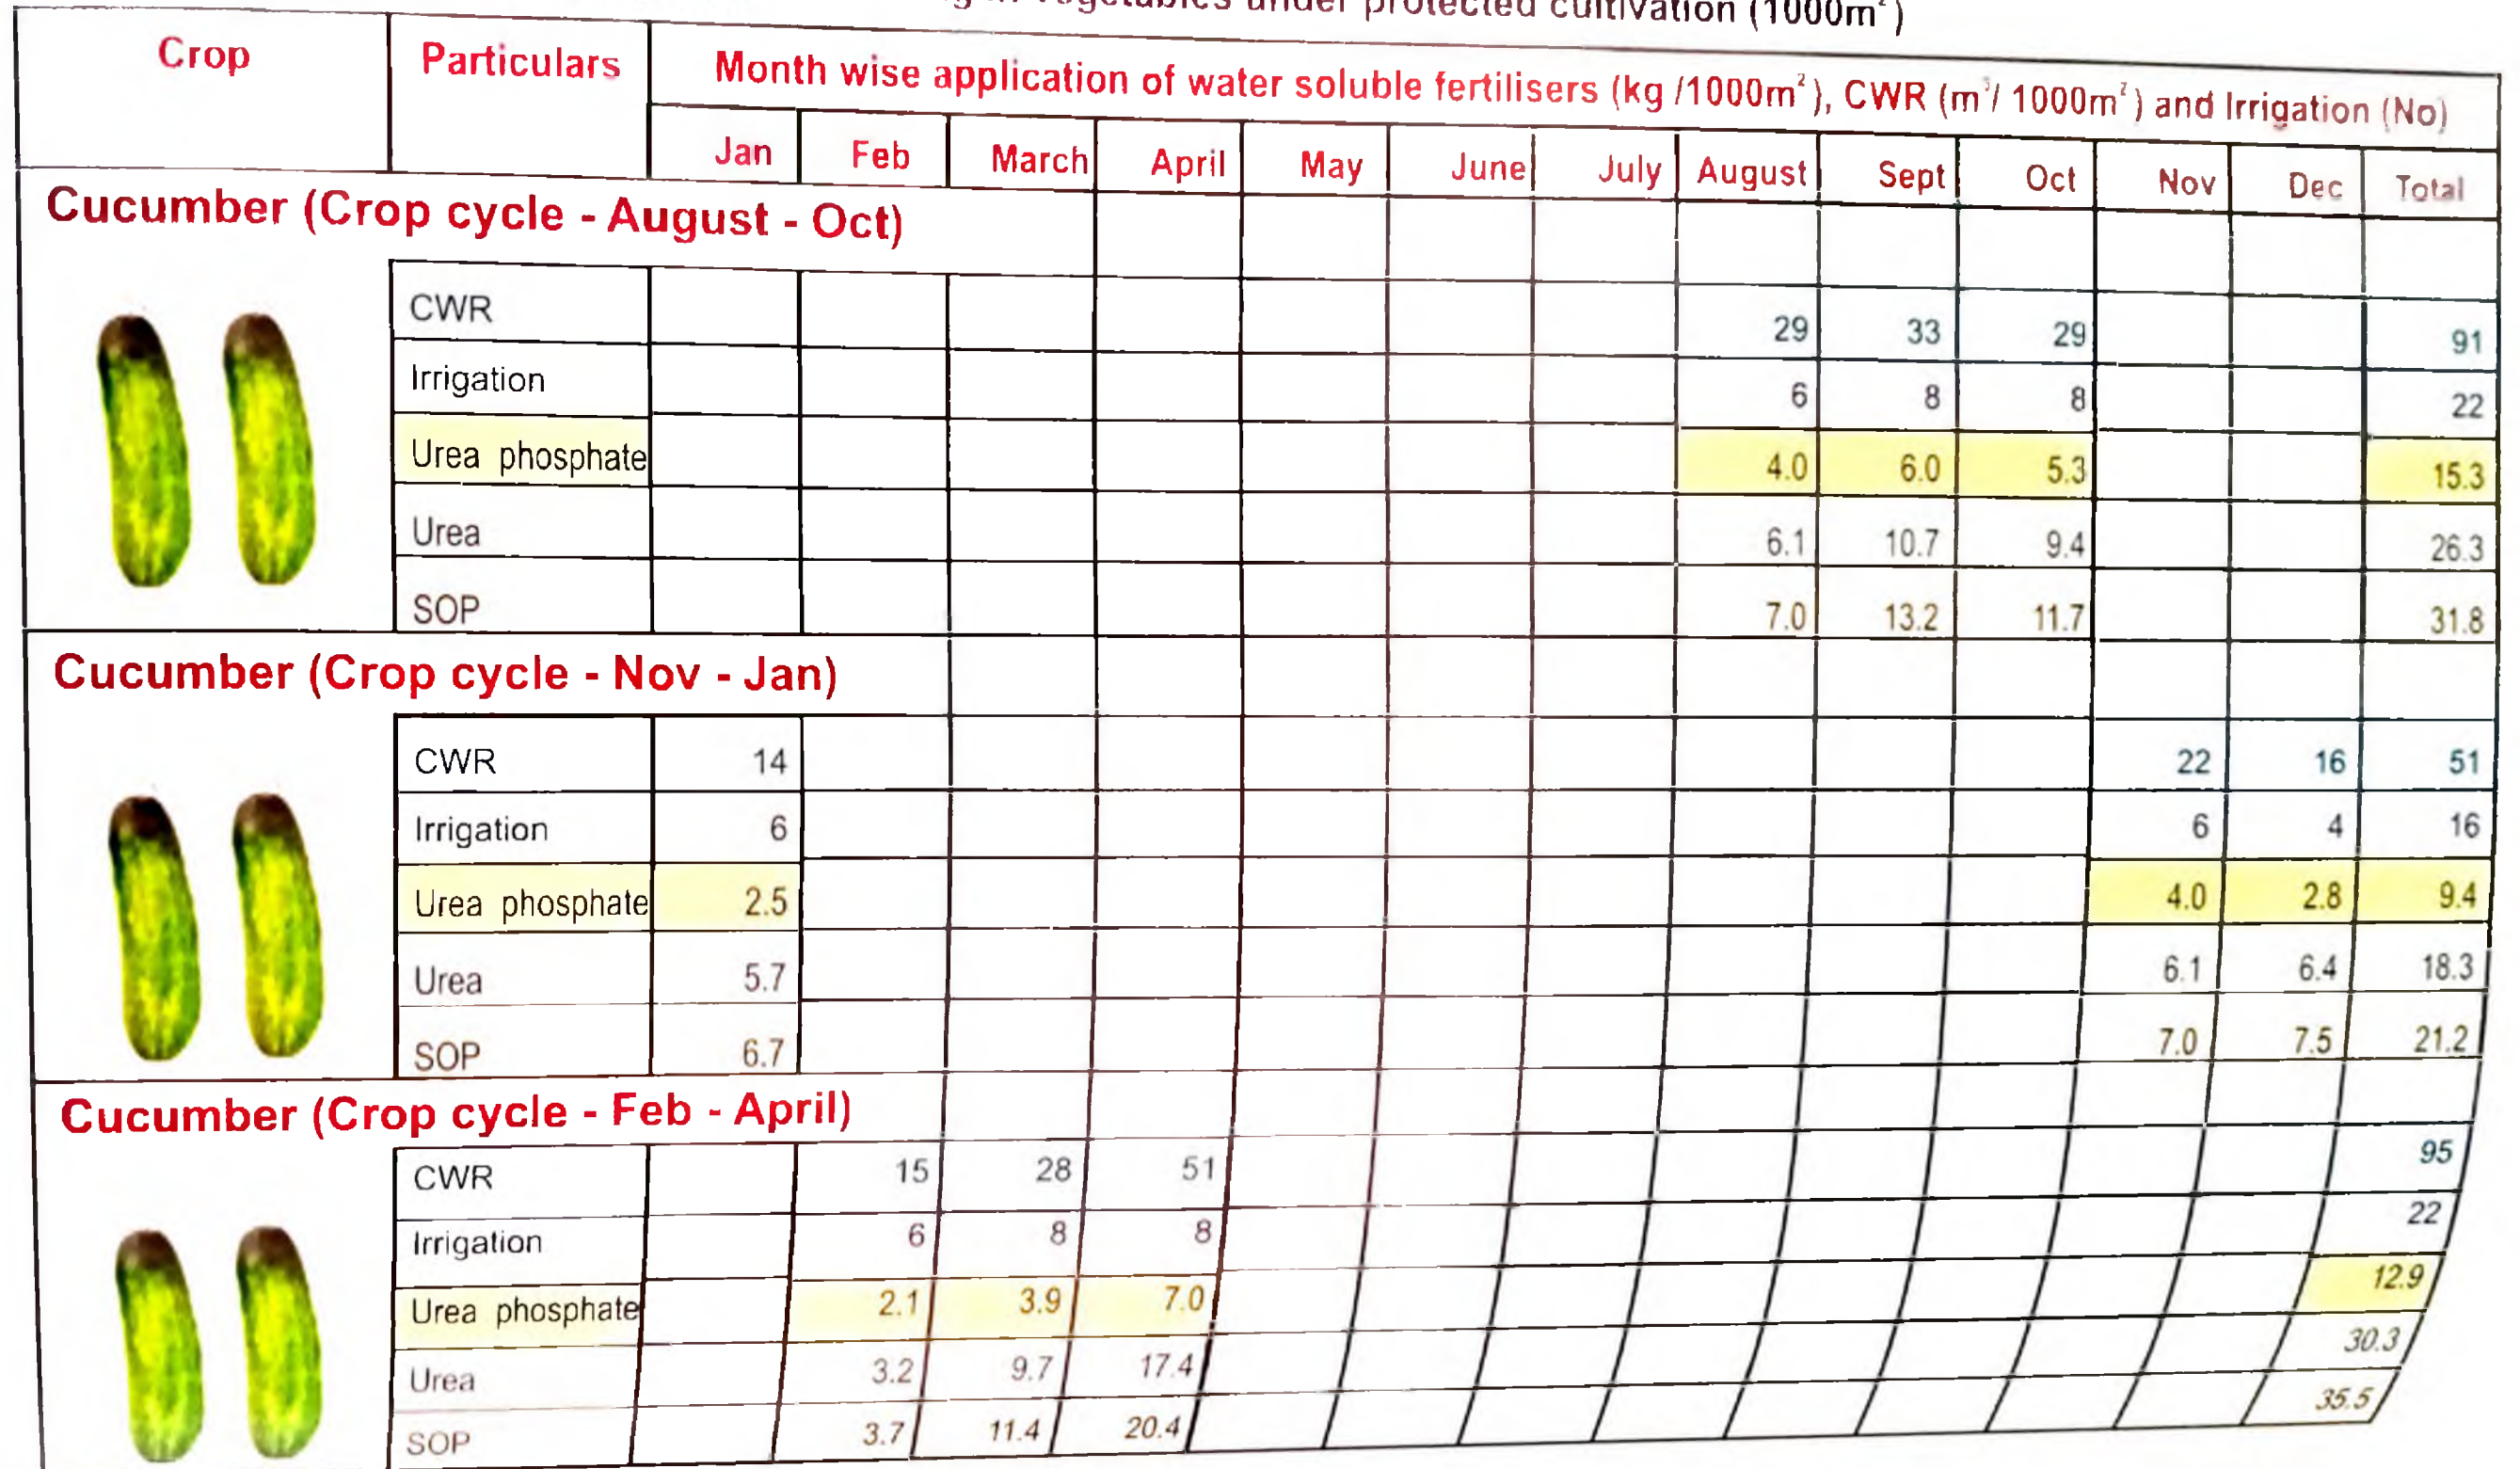 vegetables under protected cultivation (1000m²)
Crop Particulars Month wise application of water soluble fertilisers (kg /1000m²), CWR (m³/ 1000m²) and Irrigation (No)
Jan Feb March April May June July August Sept Oct Nov Dec Total
Cucumber (Crop cycle - August - Oct)
CWR 29 33 29 91
Irrigation 6 8 8 22
Urea phosphate 4.0 6.0 5.3 15.3
Urea 6.1 10.7 9.4 26.3
SOP 7.0 13.2 11.7 31.8
Cucumber (Crop cycle - Nov - Jan)
CWR 14 22 16 51
Irrigation 6 6 4 16
Urea phosphate 2.5 4.0 2.8 9.4
Urea 5.7 6.1 6.4 18.3
SOP 6.7 7.0 7.5 21.2
Cucumber (Crop cycle - Feb - April)
CWR 15 28 51 95
Irrigation 6 8 8 22
Urea phosphate 2.1 3.9 7.0 12.9
Urea 3.2 9.7 17.4 30.3
SOP 3.7 11.4 20.4 35.5